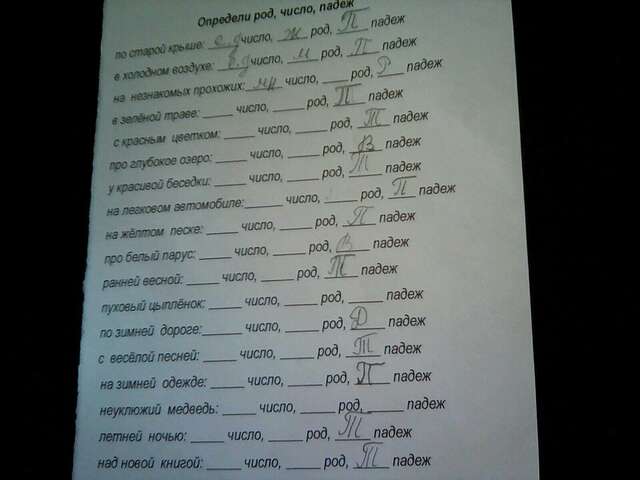 Определи род, число, падеж
по старой крыше: е.д число, ж род, П падеж
в холодном воздухе: е.д число, м род, П падеж
на незнакомых прохожих: мн число, ____ род, Р падеж
в зелёной траве: ____ число, ____ род, П падеж
с красным цветком: ____ число, ____ род, Т падеж
про глубокое озеро: ____ число, ____ род, В падеж
у красивой беседки: ____ число, ____ род, Т падеж
на легковом автомобиле: ____ число, ____ род, П падеж
на жёлтом песке: ____ число, ____ род, П падеж
про белый парус: ____ число, ____ род, В падеж
ранней весной: ____ число, ____ род, Т падеж
пуховый цыплёнок: ____ число, ____ род, ____ падеж
по зимней дороге: ____ число, ____ род, Д падеж
с весёлой песней: ____ число, ____ род, Т падеж
на зимней одежде: ____ число, ____ род, П падеж
неуклюжий медведь: ____ число, ____ род, ____ падеж
летней ночью: ____ число, ____ род, Т падеж
над новой книгой: ____ число, ____ род, Т падеж